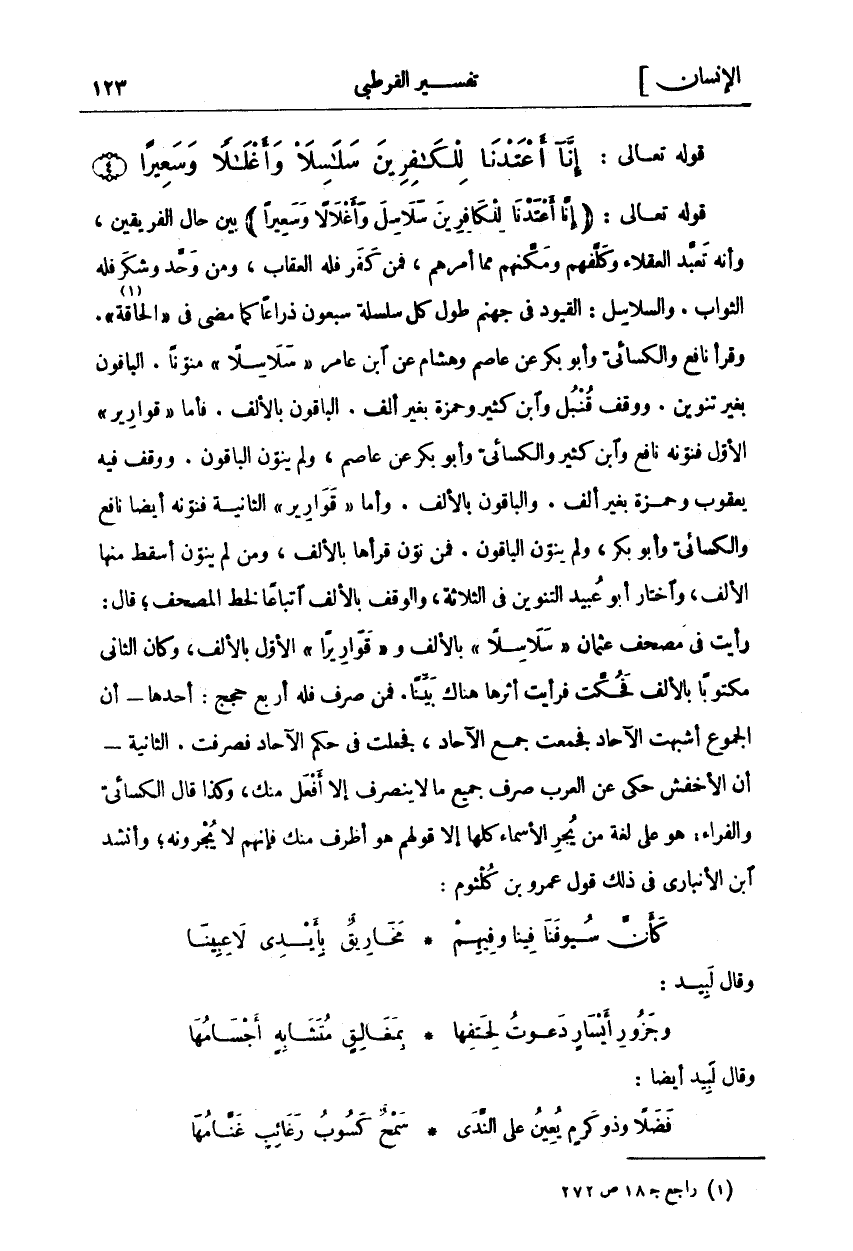 الإنسان ] تفسير القرطبى ١٢٣
قوله تعالى : إِنَّآ أَعْتَدْنَا لِلْكَـٰفِرِينَ سَلَـٰسِلَاْ وَأَغْلَـٰلًا وَسَعِيرًا ﴿٤﴾
قوله تعالى : ﴿ إِنَّا أَعْتَدْنَا لِلْكَافِرِينَ سَلَاسِلَ وَأَغْلَالًا وَسَعِيرًا ﴾ بين حال الفريقين ،
وأنه تَعبَّد العقلاء وكَلَّفهم ومَكّنهم مما أمرهم ، فمن كَفَر فله العقاب ، ومن وَحَّد وشكر فله
الثواب . والسلاسل : القيود فى جهنم طول كل سلسلة سبعون ذراعًا كما مضى فى «الحاقة»(١) .
وقرأ نافع والكسائىّ وأبو بكر عن عاصم وهشام عن آبن عامر « سَلَاسِلًا » منوّنًا . الباقون
بغير تنوين . ووقف قُنْبُل وآبن كثير وحمزة بغير ألف . الباقون بالألف . فأما « قوارير »
الأوّل فنوّنه نافع وآبن كثير والكسائىّ وأبو بكر عن عاصم ، ولم ينوّن الباقون . ووقف فيه
يعقوب وحمـزة بغير ألف . والباقون بالألف . وأما « قَوَارِير » الثانيـة فنوّنه أيضا نافع
والكسائىّ وأبو بكر ، ولم ينوّن الباقون . فمن نوّن قرأها بالألف ، ومن لم ينوّن أسقط منها
الألف ، وآختار أبو عُبيد التنوين فى الثلاثة ، والوقف بالألف آتباعًا لخط المصحف ؛ قال :
رأيت فى مصحف عثمان « سَلَاسِلًا » بالألف و « قَوَارِيرًا » الأوّل بالألف ، وكان الثانى
مكتوبًا بالألف فحُكَّت فرأيت أثرها هناك بَيِّنًا . فمن صرف فله أربع حجج : أحدها ــ أن
الجموع أشبهت الآحاد فجمعت جمـع الآحاد ، فجعلت فى حكم الآحاد فصرفت . الثانية ــ
أن الأخفش حكى عن العرب صرف جميع ما لا ينصرف إلا أَفْعَل منك ، وكذا قال الكسائىّ
والفراء : هو على لغة من يُجرِ الأسماء كلها إلا قولهم هو أظرف منك فإنهم لا يُجْرونه ؛ وأنشد
آبن الأنبارى فى ذلك قول عمرو بن كُلْثوم :
كَأَنَّ سُيوفَنَا فِينا وفِيهِمْ * مَخَارِيقٌ بِأَيْـدِى لَاعِبِينَـا
وقال لَبِيـد :
وجَزُورِ أَيْسَارٍ دَعـوتُ لِحَتفِها * بِمَغَـالِقٍ مُتَشَـابِهٍ أَجْسَـامُهَا
وقال لَبِيد أيضا :
فَضَلًا وذو كَرمٍ يُعِينُ على النَّدَى * سَمْحٌ كَسُوبُ رَغَائبٍ غَنَّـامُهَا
(١) راجع جـ ١٨ ص ٢٧٢